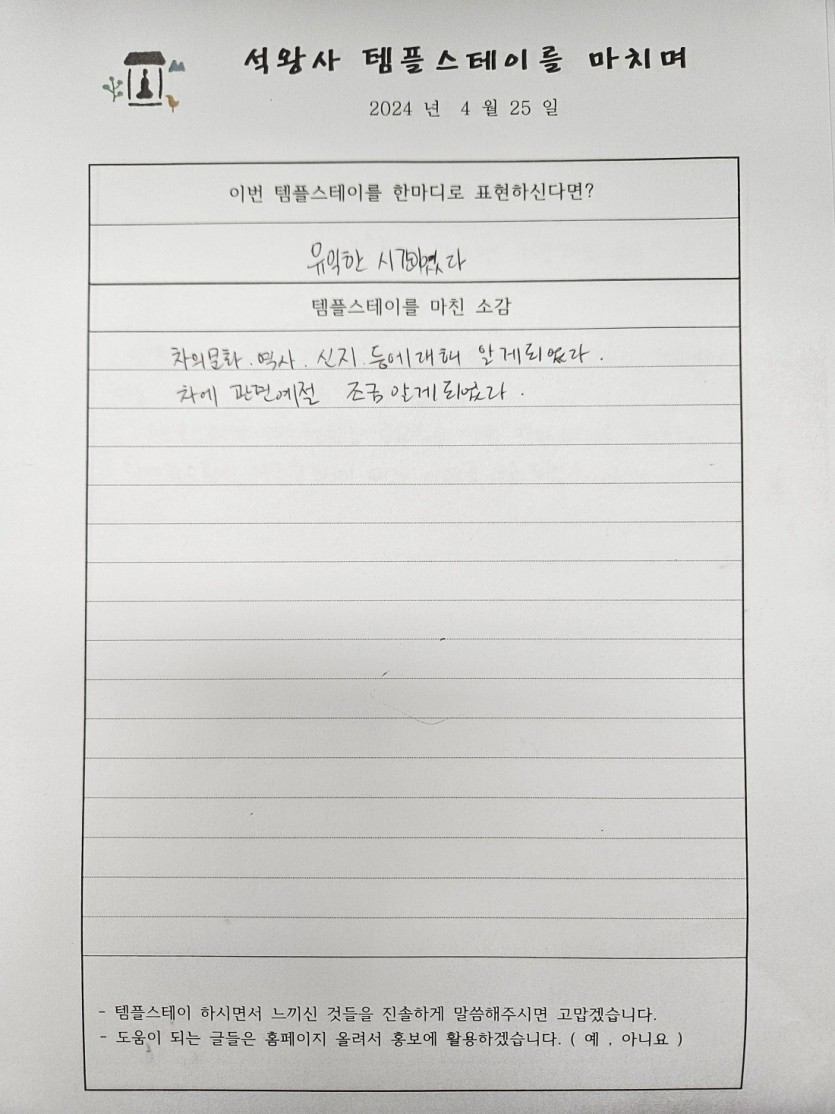 석왕사 템플스테이를 마치며
2024 년 4 월 25 일
이번 템플스테이를 한마디로 표현하신다면?
유익한 시간이였다
템플스테이를 마친 소감
차의문화. 역사. 신지. 등에대해 알게되었다.
차에 관련예절 조금 알게되었다.
- 템플스테이 하시면서 느끼신 것들을 진솔하게 말씀해주시면 고맙겠습니다.
- 도움이 되는 글들은 홈페이지 올려서 홍보에 활용하겠습니다. ( 예 , 아니요 )